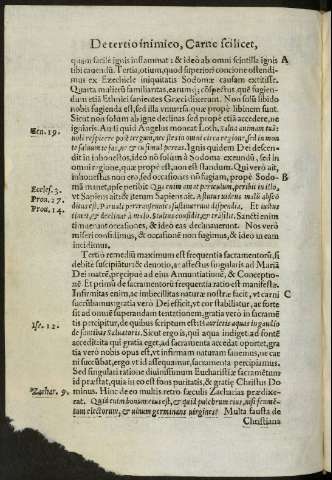 De tertio inimico, Carne scilicet,
quam facile ignis inflammat: & ideò ab omni scintilla ignis A
tibi cauendū. Tertia, otium, quod superiori concione ostendi-
mus ex Ezechiele iniquitatis Sodomæ causam extitisse.
Quarta mulierū familiaritas, earumq; cōspectus, quę fugien-
dum etiā Ethnici sapientes Græci dixerunt. Non solū libido
nobis fugienda est, sed illa quæ propè libidinem sunt.
Sicut non solùm ab igne declinas sed propè etiā accedere, ne
Gen. 19.
igniaris. Audi quid Angelus moneat Loth, salua animam tuā:
noli respicere post tergum, nec stes in omni circa regione, sed in mon
te saluum te fac, ne & tu simul pereas. Ignis quidem Dei descen-
dit in inhonestos, ideò nō solùm à Sodoma exeundū, sed in
omni regione, quæ propè est, non est standum. Qui verò ait,
inhonestus non ero, sed occasiones nō fugiam, propè Sodo- B
Eccles. 3.
mā manet, apse peribit Qui enim amat periculum, peribit in illo,
Prou. 27.
vt Sapiens ait; & iterum Sapiens ait. Astutus videns malū abscō
ditus est: Paruuli pertranseuntes sustinuerunt dispendia. Et timet
Prou. 14.
timens, & declinat à malo. Stultus confidit, & trāsilit. Sancti enim
timuerunt occasiones, & ideò eas declinauerunt. Nos verò
miseri confidimus, & occasionē non fugimus, & ideo in eam
incidimus.
Tertiò remediū maximum est frequentia sacramentorū, si
debitè suscipiātur: & deuotio, ac affectus singularis ad Mariā
Dei matrē, præcipuè ad eius Annuntiationē, & Conceptio-
nē. Et primò de sacramentorū frequentia ratio est manifesta.
Infirmitas enim, ac imbecillitas naturæ nostræ facit, vt carni C
succūbamus: gratia verò Dei efficit, vt cor stabilitur, ac forte
sit ad omnē superandam tentationem, gratia verò in sacramē
Isa. 12.
tis percipitur, de quibus scriptum est: Haurietis aquas in gaudio
de fontibus Saluatoris. Sicut ergo is, qui aqua indiget, ad fontē
accedit: ita qui gratia eget, ad sacramenta accedat oportet, gra
tia verò nobis opus est, vt infirmam naturam sanemus, ne car
ni succūbat, ergo vt id assequamur, sacramenta percipimus.
Sed singulari ratione diuinissimum Eucharistiæ sacramētum
id præstat, quia in eo est fons puritatis, & gratię Christus Do
Zachar. 9.
minus. Hinc de eo multis retro sæculis Zacharias prædixe-
rat. Quid enim bonum eius est, & quid pulchrum eius, nisi frumē-
tum electorum, & vinum germinans virgines? Multa fausta de
Christiana